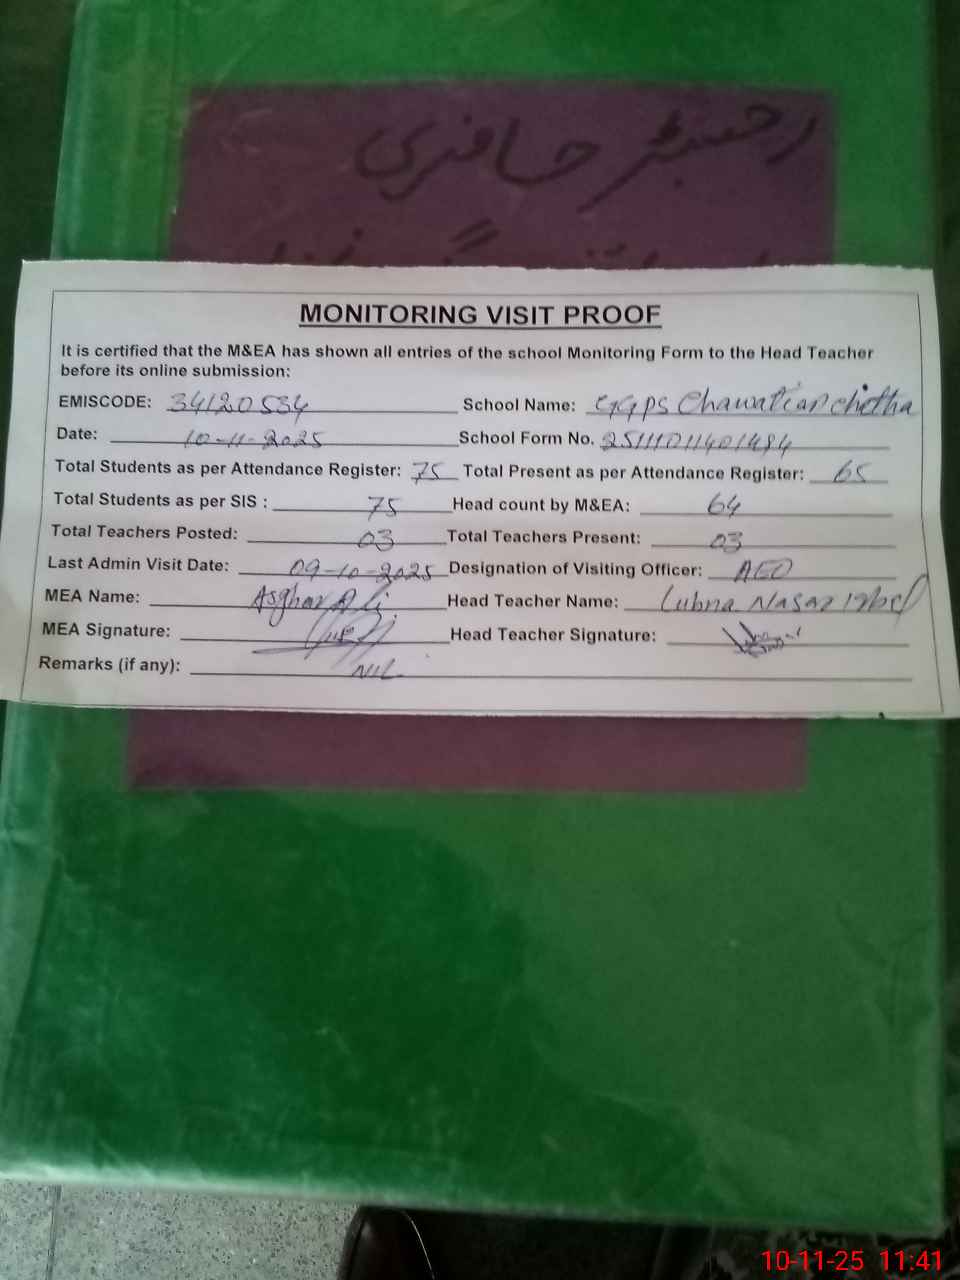 رجسٹر حاضری
MONITORING VISIT PROOF
It is certified that the M&EA has shown all entries of the school Monitoring Form to the Head Teacher
before its online submission:
EMISCODE: 34120534 School Name: GGPS Chawalian Chatha
Date: 10-11-2025 School Form No. 25111011401484
Total Students as per Attendance Register: 75 Total Present as per Attendance Register: 65
Total Students as per SIS : 75 Head count by M&EA: 64
Total Teachers Posted: 03 Total Teachers Present: 03
Last Admin Visit Date: 09-10-2025 Designation of Visiting Officer: AEO
MEA Name: Asghar Ali Head Teacher Name: Lubna Nasaz Iqbal
MEA Signature: Head Teacher Signature:
Remarks (if any): NIL
10-11-25 11:41